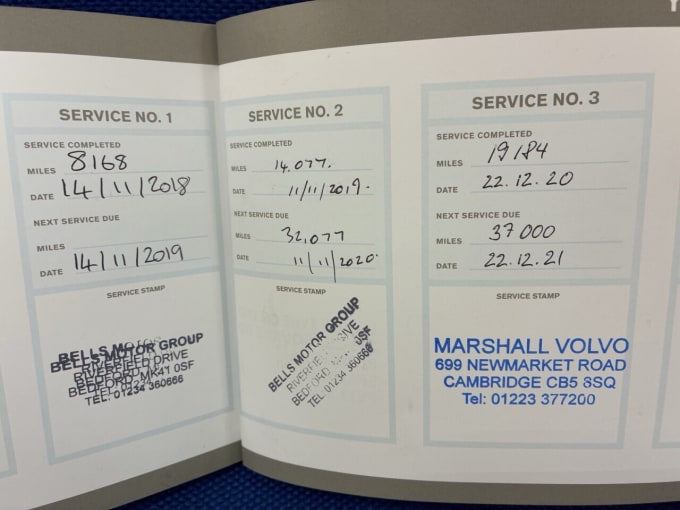 SERVICE NO. 1
SERVICE COMPLETED
MILES 8168
DATE 14/11/2018
NEXT SERVICE DUE
MILES
DATE 14/11/2019
SERVICE STAMP
BELLS MOTOR GROUP
BELLS MOTOR GROUP
RIVERFIELD DRIVE
BEDFORD MK41 0SF
TEL: 01234 360666
SERVICE NO. 2
SERVICE COMPLETED
MILES 14,077.
DATE 11/11/2019.
NEXT SERVICE DUE
MILES 32,077
DATE 11/11/2020.
SERVICE STAMP
BELLS MOTOR GROUP
DRIVE
BEDFORD 0SF
TEL 01234 360666
SERVICE NO. 3
SERVICE COMPLETED
MILES 19184
DATE 22.12.20
NEXT SERVICE DUE
MILES 37000
DATE 22.12.21
SERVICE STAMP
MARSHALL VOLVO
699 NEWMARKET ROAD
CAMBRIDGE CB5 8SQ
Tel: 01223 377200